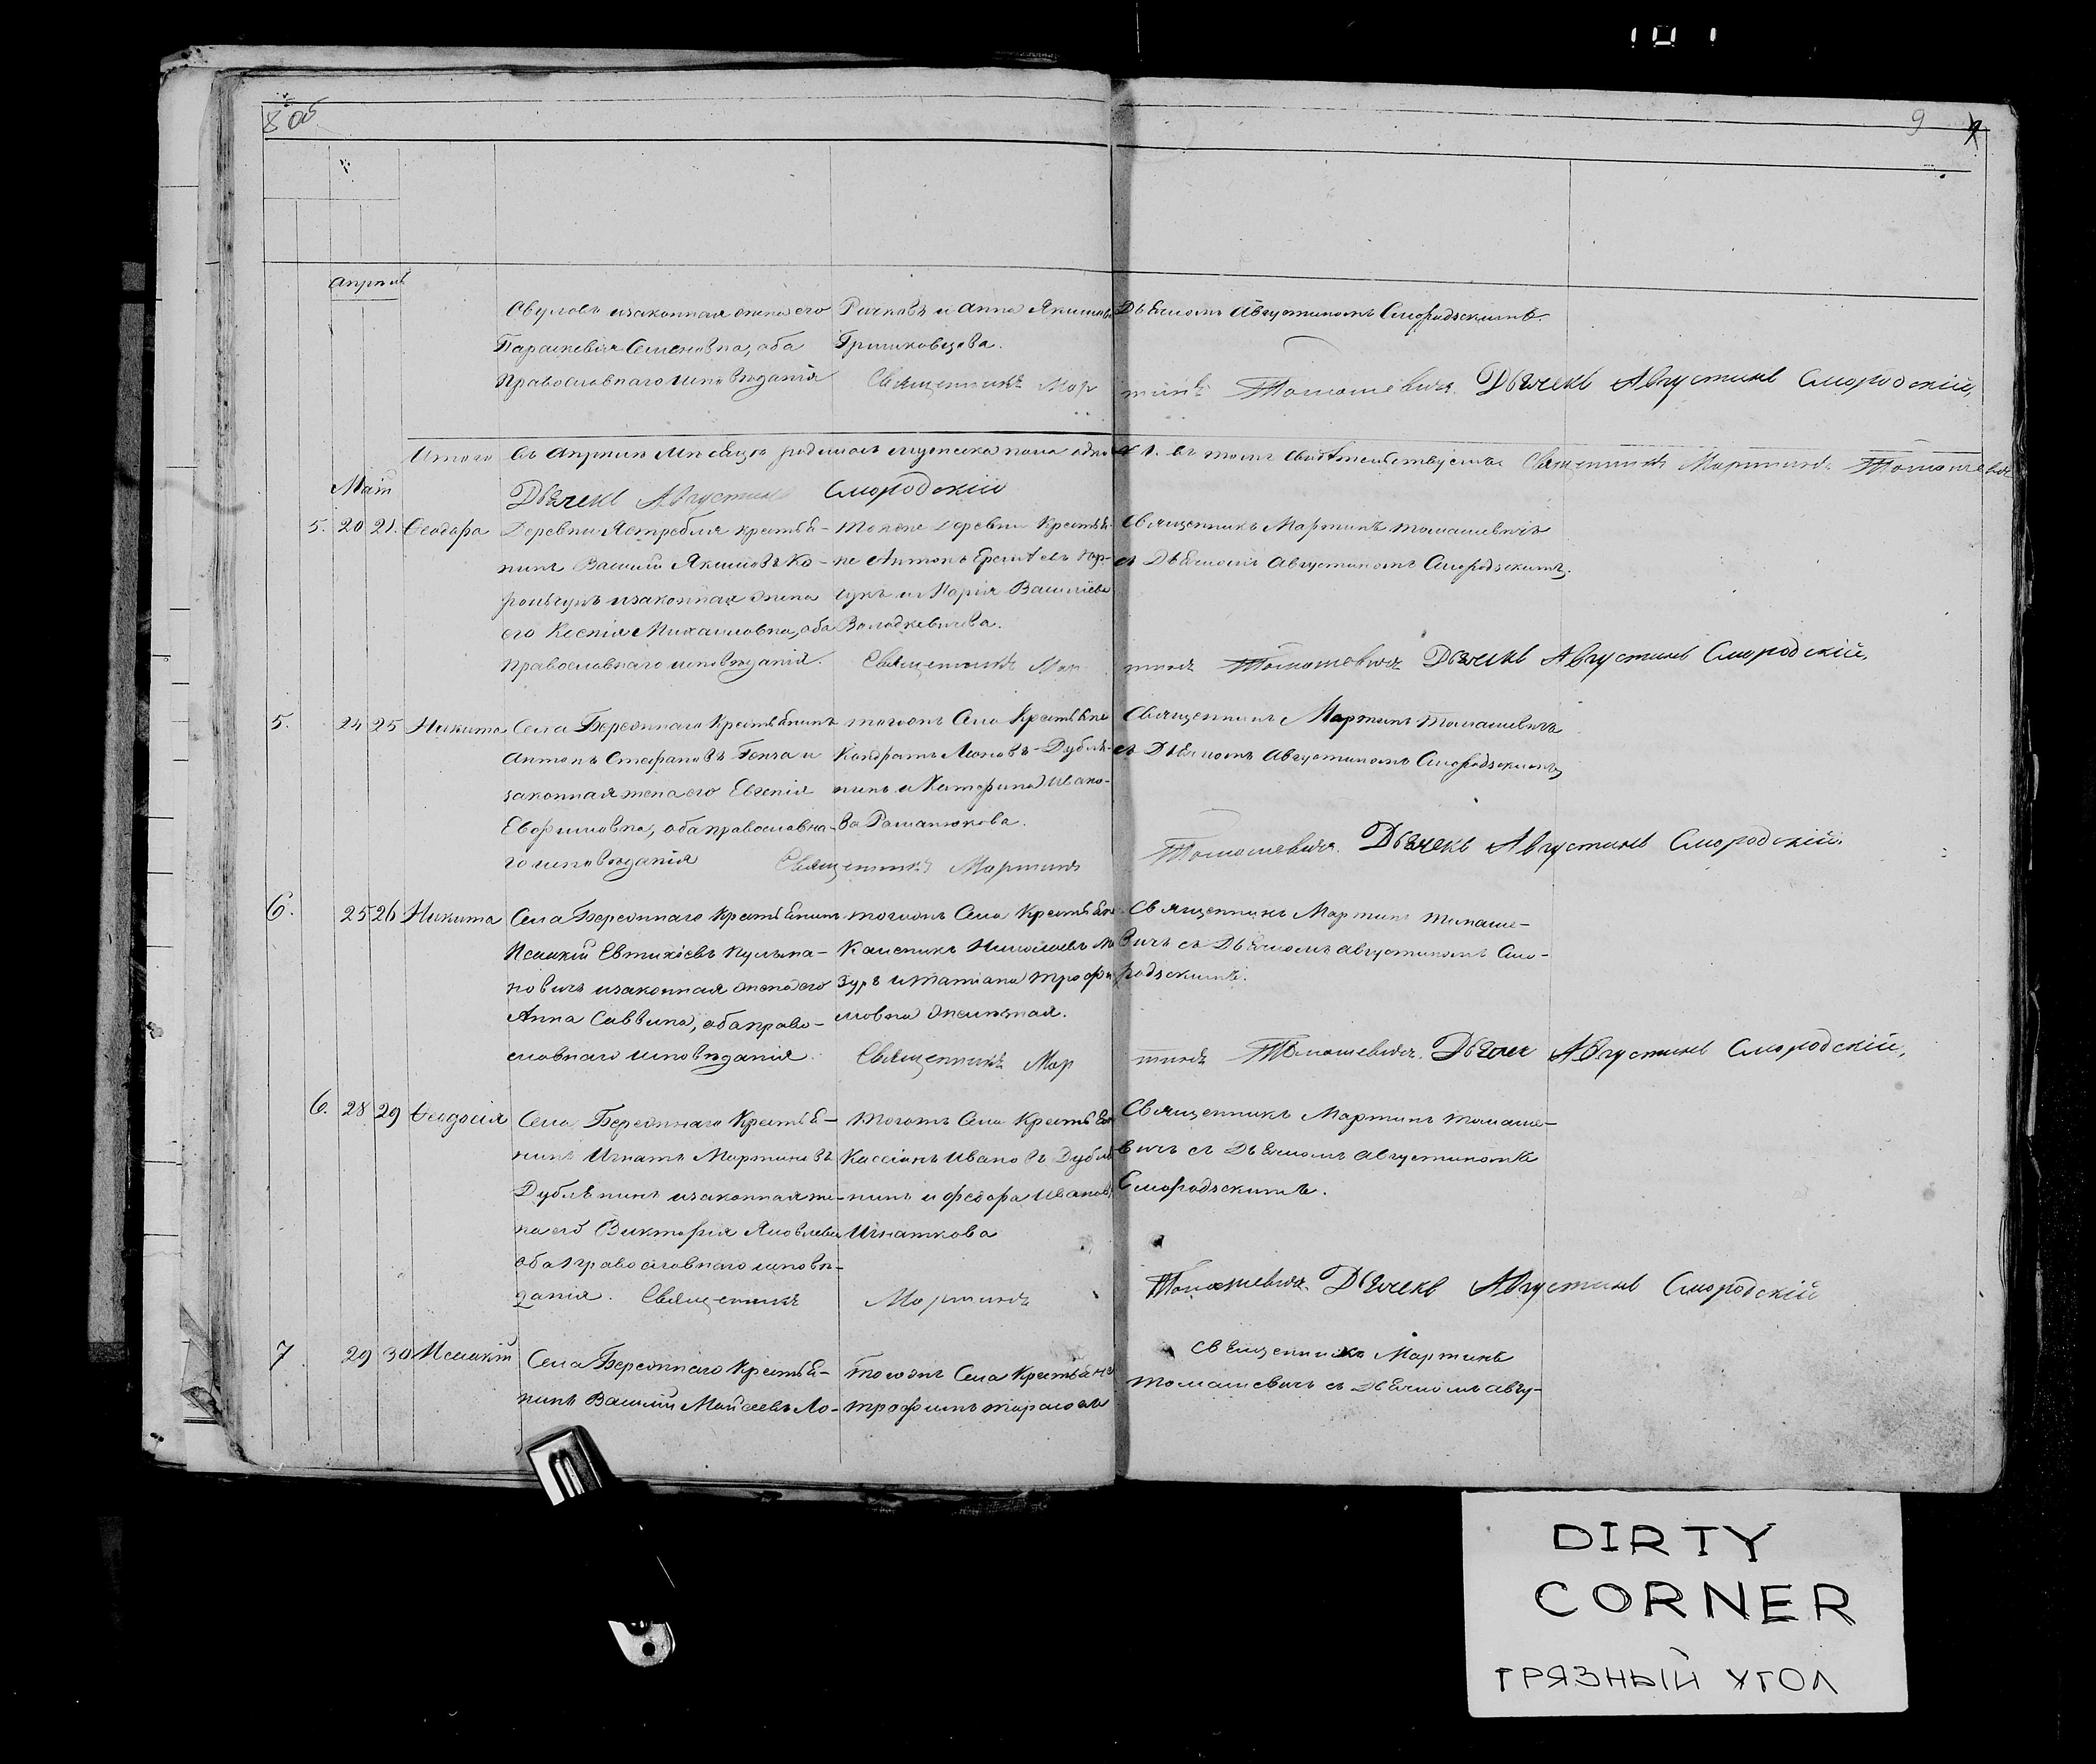 101
9
Апрѣль
Авуловъ и законная жена его
Параскевія Семеновна, оба
православнаго исповѣданія
Рачковъ и Анна Якимова
Гришковцова.
Дьячкомъ Августиномъ Смородскимъ.
Священникъ Мартинъ Томашевичъ. Дьячекъ Августинъ Смородскій,
Итого въ Апрѣлѣ Мѣсяцѣ родилось мужеска пола
въ томъ свидѣтельствуемъ Священникъ Мартинъ Томашевичъ
Дьячекъ Августинъ Смородскій
Май
5. 20 21. Ѳеодора
Деревни Ястребля крестья-
нинъ Василій Якимовъ Ко-
рольчукъ и законная жена
его Ксенія Михаиловна, оба
православнаго исповѣданія.
Тояже деревни Крестья-
не Антонъ
и Марія Васильева
Володкевичева.
Священникъ Мартинъ Томашевичъ
съ Дьячкомъ Августиномъ Смородскимъ.
Священникъ Мартинъ Томашевичъ Дьячекъ Августинъ Смородскій,
5. 24 25 Никита
Села Березннаго Крестьянинъ
Антонъ Стефановъ Генча и
законная жена его Евгенія
Ефимовна, оба православна-
го исповѣданія
тогожъ Села Крестьяне
Кондратъ Леоновъ Дубля-
нинъ и Катерина Ивано-
ва Романюкова.
Священникъ Мартинъ Томашевичъ
съ Дьячкомъ Августиномъ Смородскимъ
Священникъ Мартинъ Томашевичъ. Дьячекъ Августинъ Смородскій.
6. 25 26 Никита
Села Березннаго Крестьянинъ
Исаакій Евтихіевъ Кульма-
новичъ и законная жена его
Анна Саввина, оба право-
славнаго исповѣданія.
тогожъ Села Крестьяне
Каленикъ Николаевъ Ма
зуръ и Татіана Трофи
мовна
Священникъ Мартинъ Томаше-
вичъ съ Дьячкомъ Августиномъ Смо-
родскимъ.
Священникъ Мартинъ Томашевичъ. Дьячекъ Августинъ Смородскій,
6. 28 29 Ѳеодосія
Села Березннаго Крестья-
нинъ Игнатъ Мартиновъ
Дублянинъ и законная же-
на его Викторія Яковлева
оба православнаго исповѣ-
данія.
тогожъ Села Крестьяне
Кассіанъ Ивановъ Дубля
нинъ и Федора Иванова
Игнаткова
Священникъ Мартинъ Томаше-
вичъ съ Дьячкомъ Августиномъ
Смородскимъ.
Священникъ Мартинъ Томашевичъ. Дьячекъ Августинъ Смородскій
7 29 30 Исаакій
Села Березннаго Крестья-
нинъ Василій Мойсеевъ Ло-
тогожъ Села Крестьяне
Трофимъ Тарасовъ
Священникъ Мартинъ
Томашевичъ съ Дьячкомъ Авгу-
DIRTY
CORNER
ГРЯЗНЫЙ УГОЛ